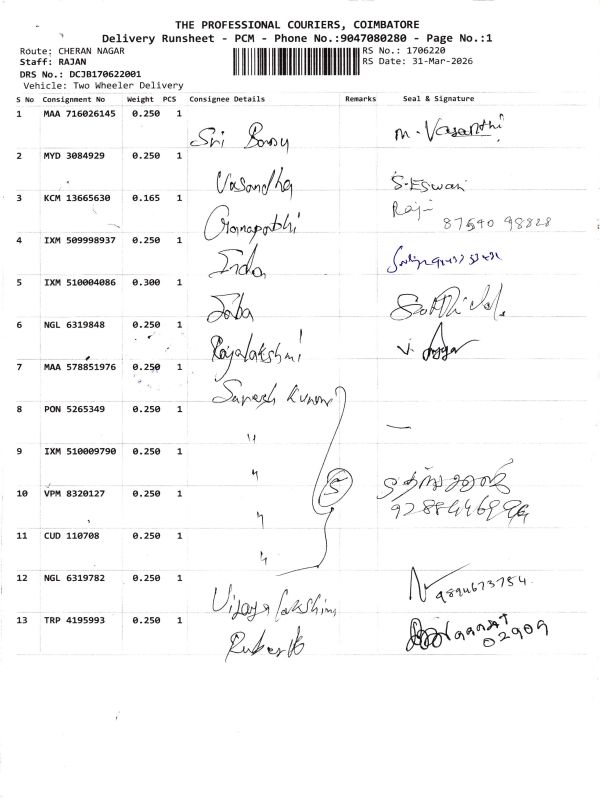 THE PROFESSIONAL COURIERS, COIMBATORE
Delivery Runsheet - PCM - Phone No.:9047080280 - Page No.:1
Route: CHERAN NAGAR
RS No.: 1706220
Staff: RAJAN
RS Date: 31-Mar-2026
DRS No.: DCJB170622001
Vehicle: Two Wheeler Delivery
S No Consignment No Weight PCS Consignee Details Remarks Seal & Signature
1 MAA 716026145 0.250 1 Sri M. Vasanthi
2 MYD 3084929 0.250 1 Vasandha S. Eswari
3 KCM 13665630 0.165 1 Raji
87540 98828
4 IXM 509998937 0.250 1 Inda
5 IXM 510004086 0.300 1 Sakthivel.
6 NGL 6319848 0.250 1 Rajalakshmi
7 MAA 578851976 0.250 1 Suresh Kumar
8 PON 5265349 0.250 1 "
9 IXM 510009790 0.250 1 "
10 VPM 8320127 0.250 1 " 5
11 CUD 110708 0.250 1 "
12 NGL 6319782 0.250 1 Vijaya lakshmi 9894673754.
13 TRP 4195993 0.250 1
02909